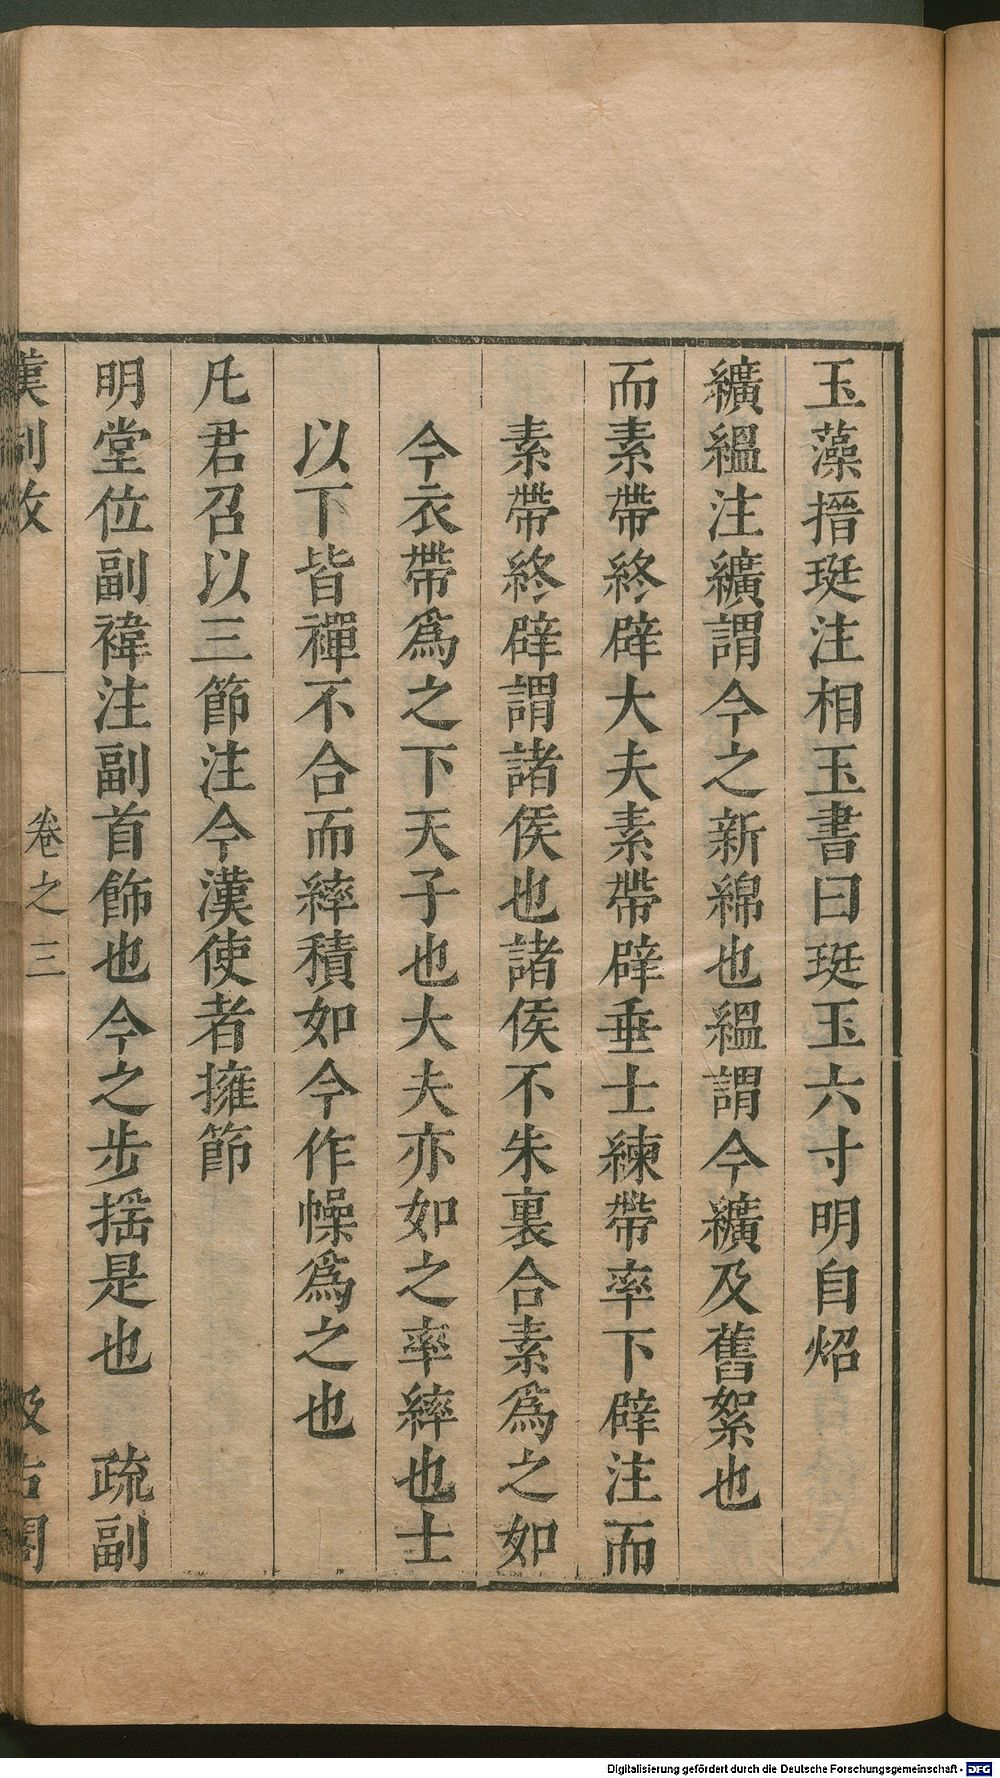 玉藻搢珽注相玉書曰珽玉六寸明自炤
纊縕注纊謂今之新綿也縕謂今纊及舊絮也
而素帶終辟大夫素帶辟垂士練帶率下辟注而
素帶終辟謂諸侯也諸侯不朱裏合素爲之如
今衣帶爲之下天子也大夫亦如之率繂也士
以下皆禪不合而繂積如今作幧爲之也
凡君召以三節注今漢使者擁節
明堂位副褘注副首飾也今之步搖是也 疏副
漢制攷 卷之三 汲古閣
Digitalisierung gefördert durch die Deutsche Forschungsgemeinschaft - DFG